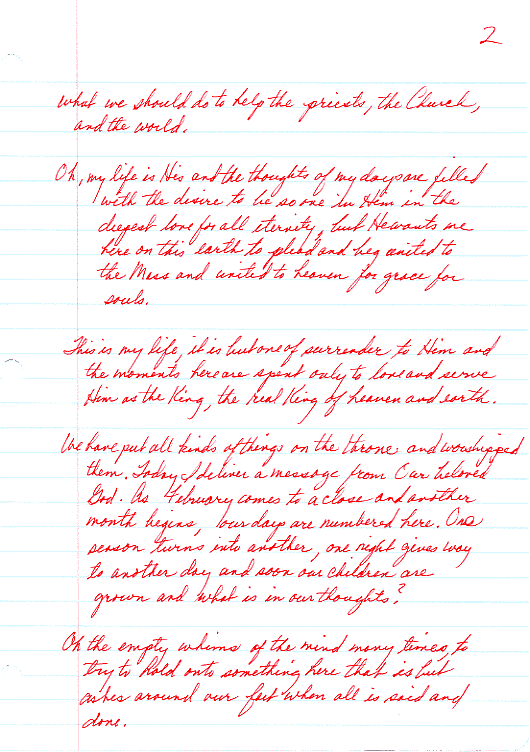 2
what we should do to help the priests, the Church,
and the world.
Oh, my life is His and the thoughts of my days are filled
with the desire to be so one in Him in the
deepest love for all eternity, but He wants me
here on this earth to plead and beg united to
the Mass and united to heaven for grace for
souls.
This is my life, it is but one of surrender to Him and
the moments here are spent only to love and serve
Him as the King, the real King of heaven and earth.
We have put all kinds of things on the throne and worshipped
them. Today I deliver a message from Our beloved
God. As February comes to a close and another
month begins, our days are numbered here. One
season turns into another, one night gives way
to another day and soon our children are
grown and what is in our thoughts?
Oh the empty whims of the mind many times, to
try to hold onto something here that is but
ashes around our feet when all is said and
done.